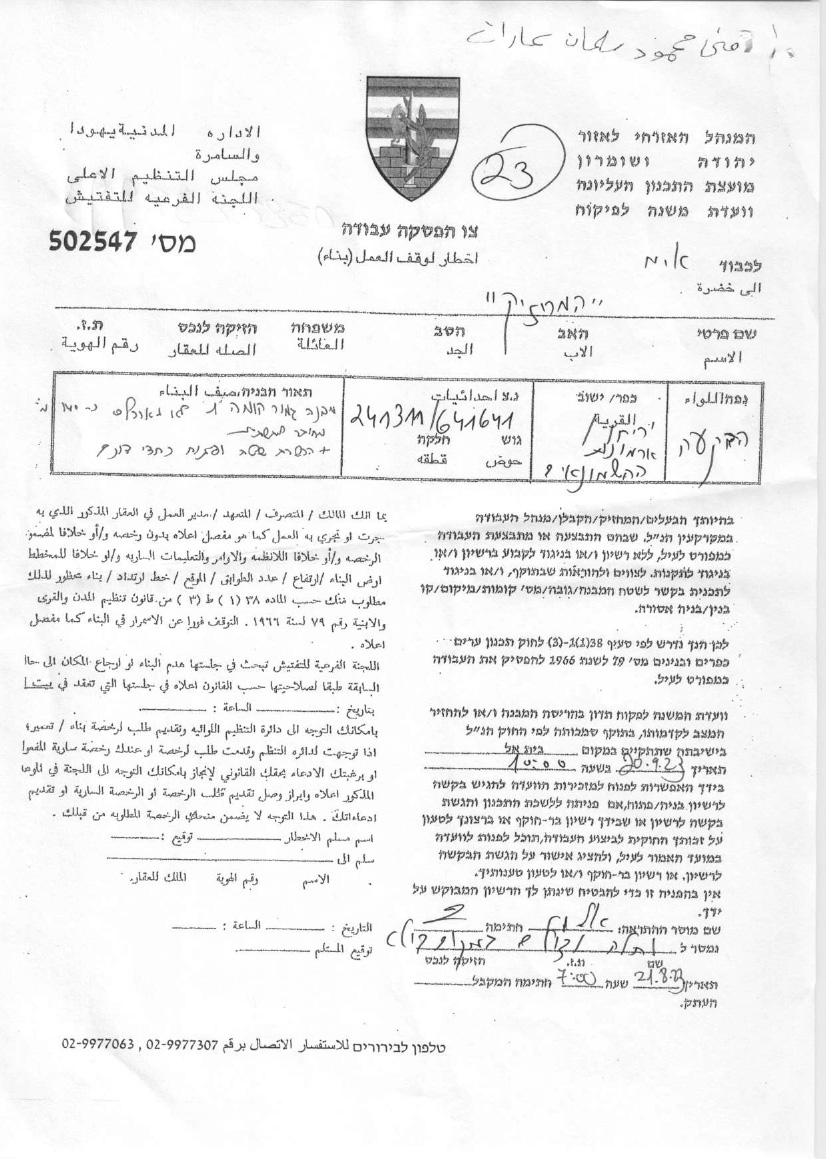 منى محمود سلمان عمارات
23
המנהל האזרחי לאזור
יהודה ושומרון
מועצת התכנון העליונה
וועדת משנה לפיקוח
الاداره المدنية يهودا
والسامرة
مجلس التنظيم الاعلى
اللجنة الفرعيه للتفتيش
מס׳ 502547
צו הפסקה עבודה
اخطار لوقف العمل (بناء)
לכבוד
الى حضرة
"המחזיק"
שם פרטי האב הסב משפחה הזיקה לנכס ת.ז.
الاسم الاب الجد العائلة الصله للعقار رقم الهوية
נפה/اللواء
הבקעה
כפר/ישוב
القرية
יריחו
ארמונות
החשמונאים
נ.צ احداثيات
241311/641641
גוש חלקה
حوض قطعه
תאור הבניה/وصف البناء
+ הכשרת שטח
בהיותך הבעלים/המחזיק/הקבלן/מנהל העבודה
במקרקעין הנ"ל. שבהם התבצעה או מתבצעת העבודה
כמפורט לעיל, ללא רשיון ו/או בניגוד לקבוע ברשיון ו/או
בניגוד לתקנות. לצווים ולהוראות שבתוקף, ו/או בניגוד
לתכנית בקשר לשטח המבנה/גובה/מס' קומות/מיקום/קו
בנין/בניה אסורה.
לכן הנך נדרש לפי סעיף 38(1)-(3) לחוק תכנון ערים
כפרים ובנינים מס' 79 לשנת 1966 להפסיק את העבודה
כמפורט לעיל.
וועדת המשנה לפקוח תדון בהריסת המבנה ו/או להחזיר
המצב לקדמותו, בתוקף סמכותה לפי החוק הנ"ל
בישיבתה שתתקיים במקום בית אל
תאריך 20.9.23 בשעה 10:00
בידך האפשרות לפנות למזכירות הוועדה להגיש בקשה
לרשיון בניה/פתוח, אם פניתה ללשכת התכנון והגשת
בקשה לרשיון או שבידך רשיון בר-חוקף או ברצונך לטעון
על זכותך החוקית לביצוע העבודה, תוכל לפנות לוועדה
במועד האמור לעיל, ולהציג אישור על הגשת הבקשה
לרשיון. או רשיון בר-חוקף ו/או לטעון טענותיך.
אין בהפניה זו כדי להבטיח שינתן לך הרשיון המבוקש על
ידך.
שם מוסר ההתראה: חתימה
נמסר ל
שם ת.ז. הזיקה לנכס
תאריך 21.8.23 שעה 7:00 חתימה המקבל
העתק.
بما انك المالك / المتصرف / المتعهد / مدير العمل في العقار المذكور اللذي به
جرت او تجري به العمل كما هو مفصل اعلاه بدون رخصه و/أو خلافا لمضمون
الرخصه و/أو خلافا للانظمه والاوامر والتعليمات الساريه و/او خلافا للمخطط
ارض البناء / ارتفاع / عدد الطوابق / الموقع / خط ارتداد / بناء محظور لذلك
مطلوب منك حسب الماده ٣٨ (١) ط (٣) من قانون تنظيم المدن والقرى
والابنية رقم ٧٩ لسنة ١٩٦٦ . التوقف فورا عن الاسمرار في البناء كما مفصل
اعلاه .
اللجنة الفرعية للتفتيش تبحث في جلستها هدم البناء او ارجاع المكان الى حا
السابقة طبقا لصلاحيتها حسب القانون اعلاه في جلستها التي تعقد في
بتاريخ : الساعة :
بامكانك التوجه الى دائرة التنظيم اللوائيه وتقديم طلب لرخصة بناء / تعمير؛
اذا توجهت لدائره التنظم وقدمت طلب لرخصة او عندك رخصة سارية المفعو
او برغبتك الادعاء بحقك القانوني لإنجاز بامكانك التوجه الى اللجنة في
المذكور اعلاه وابراز وصل تقديم طلب الرخصة او الرخصة السارية او تقديم
ادعاءاتك . هذا التوجه لا يضمن منحك الرخصة المطلوبه من قبلك .
اسم مسلم الاخطار توقيع :
سلم الى
الاسم رقم الهوية المالك للعقار.
التاريخ : الساعة :
توقيع المستلم
טלפון לבירורים للاستفسار الاتصال برقم 02-9977307 , 02-9977063